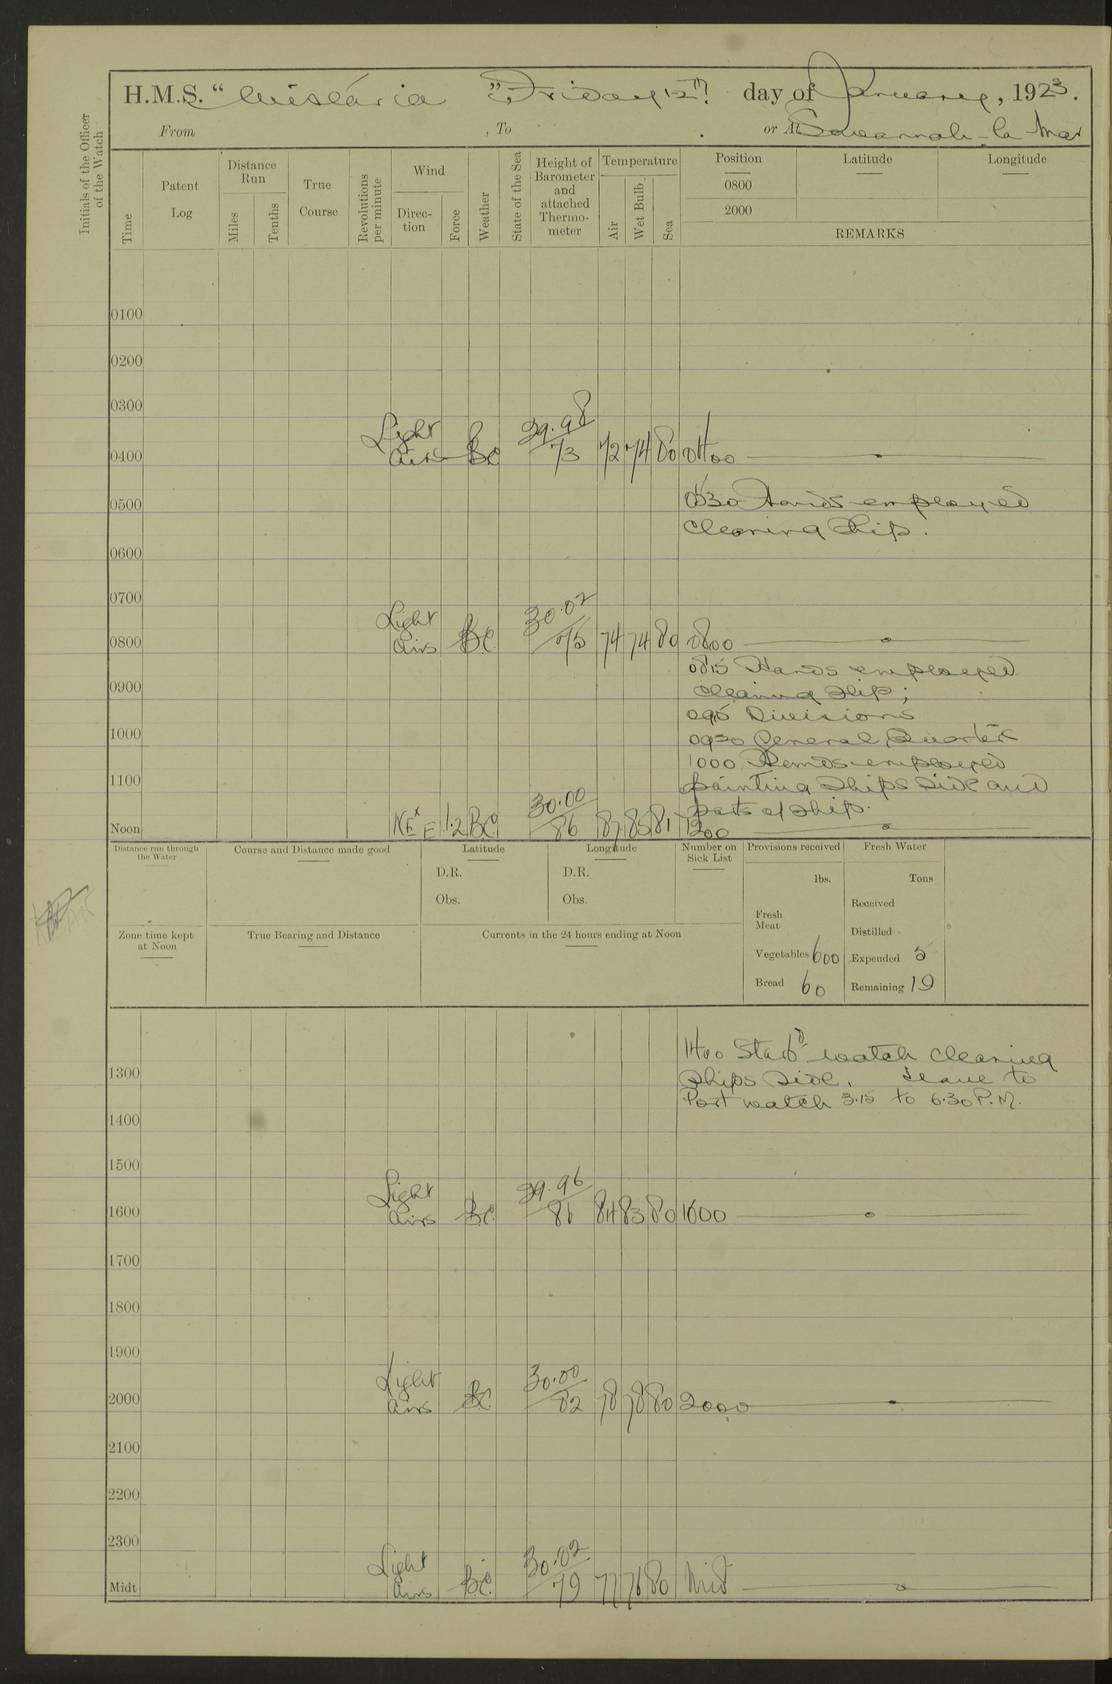 H.M.S. “Wistaria” Friday 12th day of January, 1923.
From , To . or At Savannah-la-Mar
Initials of the Officer of the Watch
Time
Patent Log
Distance Run
Miles
Tenths
True Course
Revolutions per minute
Wind
Direction
Force
Weather
State of the Sea
Height of Barometer and attached Thermometer
Temperature
Air
Wet Bulb
Sea
Position Latitude Longitude
0800
2000
REMARKS
0100
0200
0300
0400 Light airs BC 29.98/73 72 74 80 0400
0500 0530 Hands employed
cleaning Ship.
0600
0700
0800 Light airs BC 30.02/75 74 74 80 0800
0815 Hands employed
0900 cleaning ship;
0915 Divisions
1000 0930 General Quarters
1000 Hands employed
1100 painting Ships side and
parts of ship.
Noon NExE 1.2 BC 30.00/86 87 85 81 1200
Distance run through the Water
Course and Distance made good
Latitude
D.R.
Obs.
Longitude
D.R.
Obs.
Number on Sick List
Provisions received
lbs.
Fresh Meat
Vegetables 600
Bread 60
Fresh Water
Tons
Received
Distilled
Expended 5
Remaining 19
Zone time kept at Noon
True Bearing and Distance
Currents in the 24 hours ending at Noon
1400 Starbd watch cleaning
1300 Ships side. Leave to
Port watch 3.15 to 6.30 P.M.
1400
1500
1600 Light airs BC 29.96/86 84 83 80 1600
1700
1800
1900
2000 Light airs BC 30.00/82 78 78 80 2000
2100
2200
2300
Midt Light airs BC 30.02/79 77 76 80 Mid